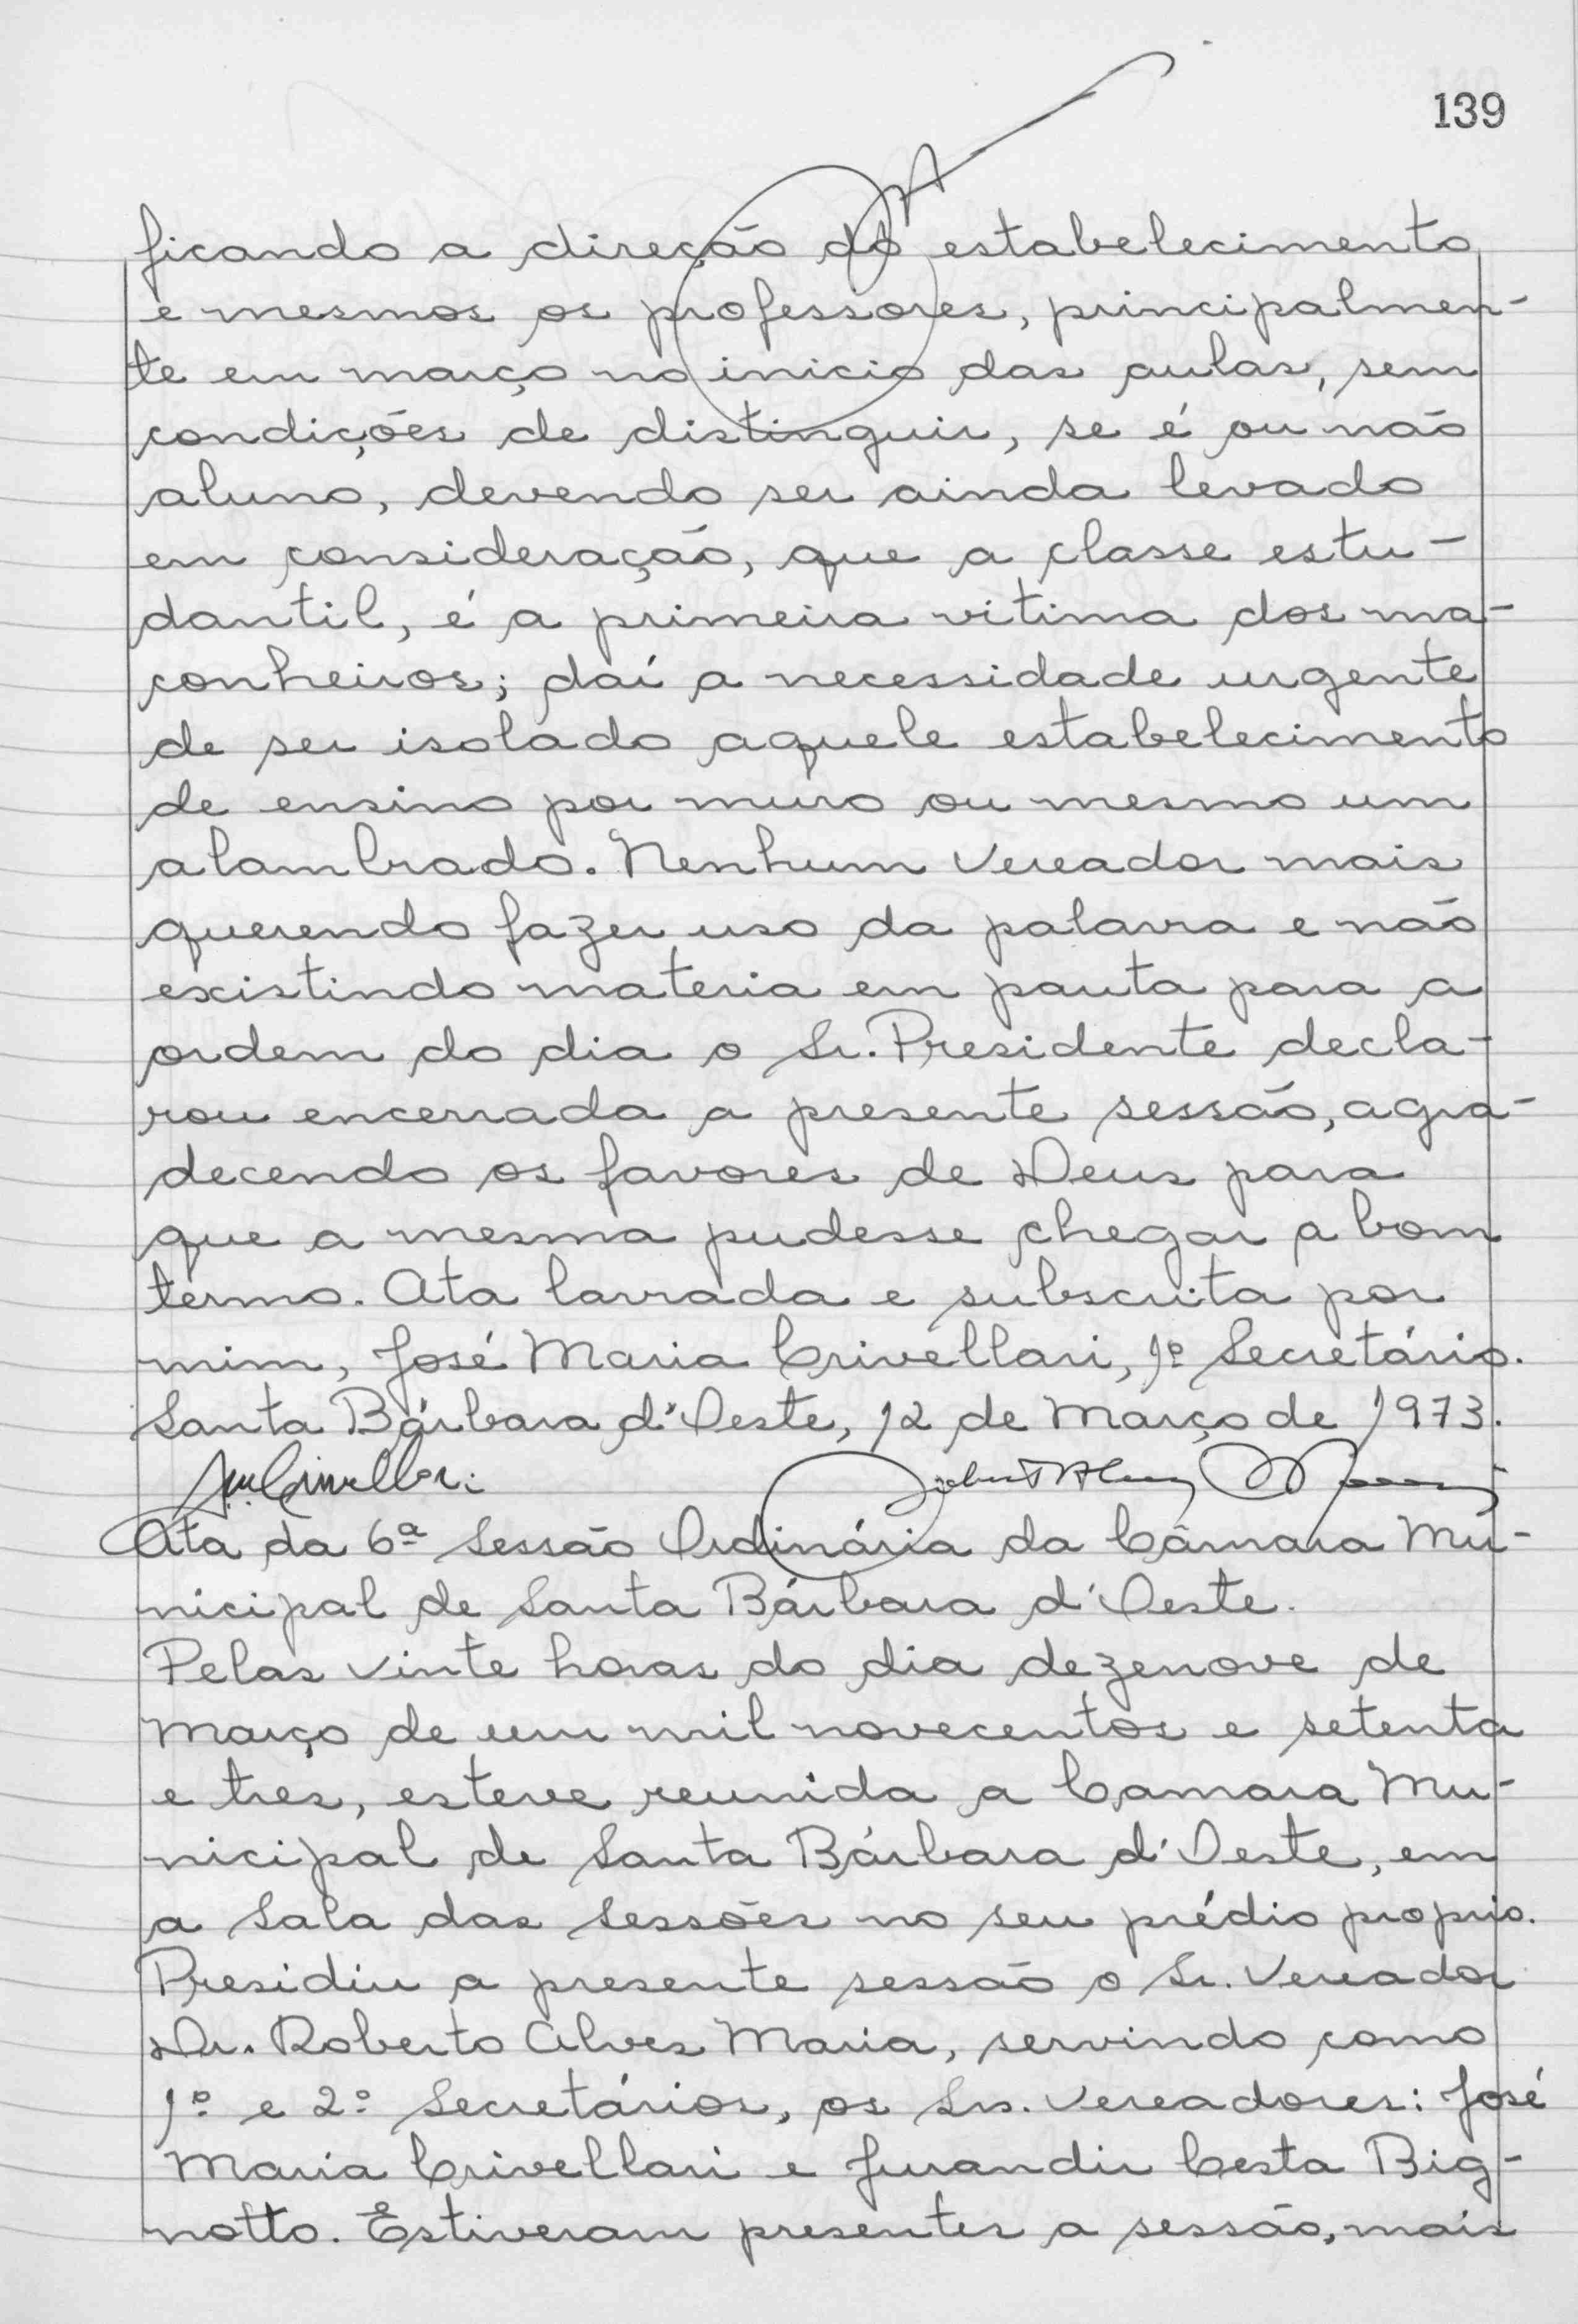 139
ficando a direção do estabelecimento
e mesmos os professores, principalmen-
te em março no inicio das aulas, sem
condições de distinguir, se é ou não
aluno, devendo ser ainda levado
em consideração, que a classe estu-
dantil, é a primeira vitima dos ma-
conheiros; daí a necessidade urgente
de ser isolado aquele estabelecimento
de ensino por muro ou mesmo um
alambrado. Nenhum Vereador mais
querendo fazer uso da palavra e não
existindo materia em pauta para a
ordem do dia o Sr. Presidente decla-
rou encerrada a presente sessão, agra-
decendo os favores de Deus para
que a mesma pudesse chegar a bom
termo. Ata lavrada e subscrita por
mim, José Maria Crivellari, 1º Secretário.
Santa Bárbara d'Oeste, 12 de Março de 1973.
Ata da 6ª Sessão Ordinária da Câmara Mu-
nicipal de Santa Bárbara d'Oeste.
Pelas vinte horas do dia dezenove de
Março de um mil novecentos e setenta
e tres, esteve reunida a Camara Mu-
nicipal de Santa Bárbara d'Oeste, em
a Sala das Sessões no seu prédio proprio.
Presidiu a presente sessão o Sr. Vereador
Dr. Roberto Alves Maria, servindo como
1º e 2º Secretários, os Srs. Vereadores: José
Maria Crivellari e Jurandir Cesta Big-
notto. Estiveram presentes a sessão, mais